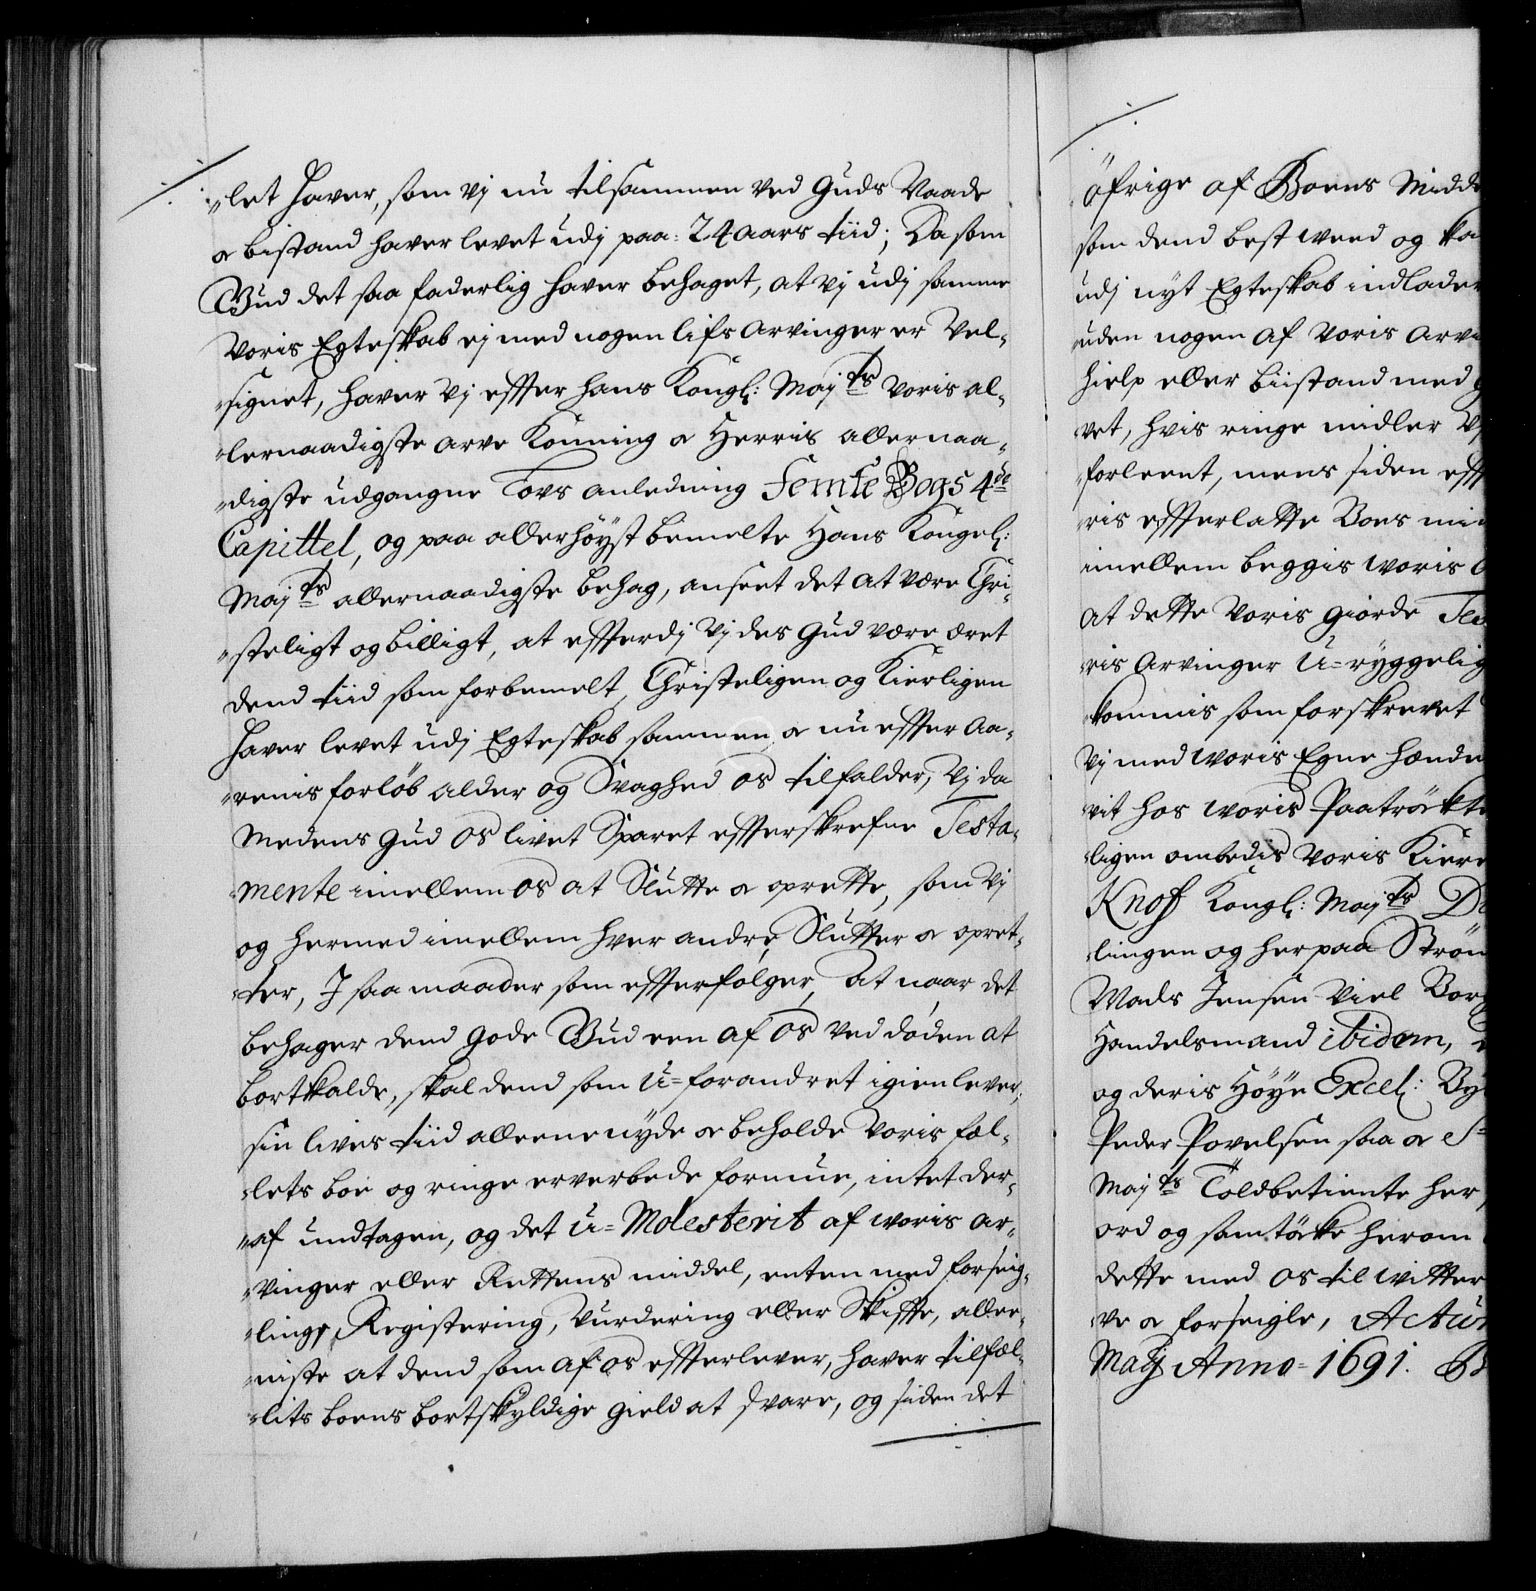 „let hafver, som vj nu tilsammen ved Guds Naade
& bistand hafver levet udj paa: 24 aars tiid; Da som
Gud det saa faderlig hafver behaget, at vj udj samme
voris Egteskab ej med nogen lifs arvinger er Vel„
„signet, hafver vj effter hans Kongl: Maj:ts voris al„
„lernaadigste arve Konning & Herris allernaa„
„digste udgangne Lovs anledning Femte Bogs 4de
Capittel, og paa allerhöyst bemelte Hans Kongel:
Maj:ts allernaadigste behag, anseet det at være Chri„
„steligt og billigt, at effterdj vj des Gud være æret
dend tiid som forbemelt, Christeligen og Kierligen
hafver levet udj Egteskab sammen & nu effter Aa„
„renis forlöb alder og Svaghed os tilfalder, vj da
medens Gud os livet Sparet effterskrefne Testa„
„mente imellem os at Slutte & oprette, som vj
og hermed imellem hver andre Slutter & opret„
„ter, J saa maader som effterfölger, At naar det
behager dend gode Gud een af os ved döden at
bortkalde, skal dend som u=forandret igienlever,
sin lives tiid alleene nyde & beholde voris fæl„
„lets boe og ringe erverbede formue, intet der„
„af undtagen, og det u=Molesterit af woris ar„
„vinger eller Rettens middel, enten med forseig„
„ling, Registering, Vurdering eller Skiffte, aller„
„niste at dend som af os effterlever, hafver tilfæl„
„lits boens bortskyldige gield at svare, og siden det
öfrige af Boens Midd
som dend best weed og ka
udj nyt Egteskab indlader
uden nogen af voris Arv
hielp eller biistand med
„vet, hvis ringe midler V
forleent, mens siden eff
„ris effterlatte Boes mi
imellem beggis woris
at dette voris giorde Tes
„ris Arvinger U=ryggelig
„kommis som forskrevet
vj med woris Egne hænde
„vit hos woris Paatröckte
„ligen ombedis voris Kiere
Knoff Kongl: Maj:ts D
„lingen og herpaa Ström
Mads Jensen Viel Bor
Handelsmand ibidem,
og deris Höye Excel: By
Peder Povelsen saa & S
Maj:ts Toldbetiente her
ord og samtöcke herom
dette med os til witter
„ve & forseigle, Actum
Maij Anno=1691.